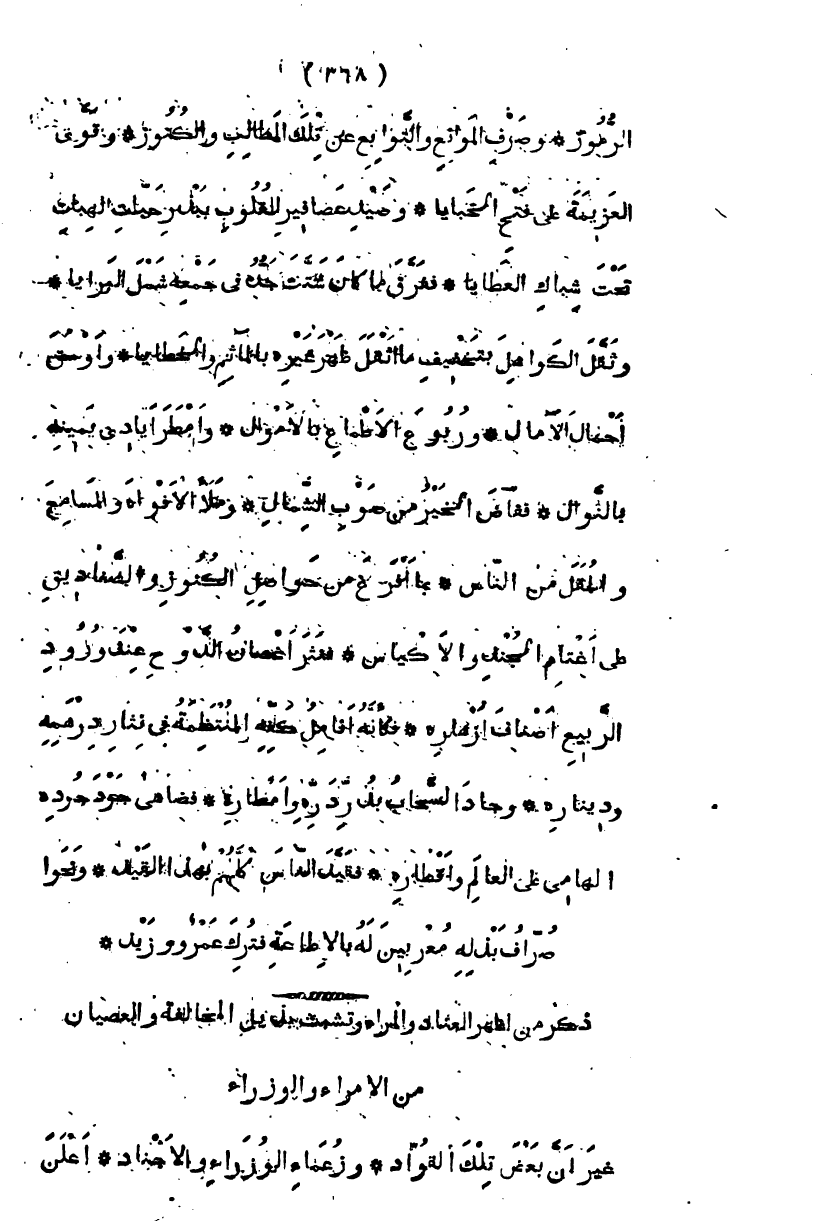 ( ٣٦٨ )
الرُّمُوزِ * وصَرْفِ المَوانِعِ والتَّوابِعِ عن تِلْكَ المَطالِبِ والكُنُوزِ * وقَوَّى
العَزِيمَةَ على فَتْحِ الخَبايا * وصَيْدِ عَصافيرِ القُلُوبِ بِبَذْرِ حَبّاتِ الهِباتِ
تَحْتَ شِباكِ العَطايا * ففَرَّقَ لما كانَ شَتَّتَ جَدُّهُ فى جَمْعِه شَمْلَ البَرايا *
وثَقَّلَ الكَواهِلَ بِتَخْفِيفِ ما أثْقَلَ ظَهْرَ غَيْرِهِ بالمآثِمِ والخَطايا * وأوْسَقَ
أحْمالَ الآمالِ * ورُبُوعَ الأطْماعِ بالأمْوالِ * وأمْطَرَ أيادِى يَمِينِه
بالنَّوالِ * ففاضَ الخَيْرُ من صَوْبِ الشِّمالِ * ومَلأَ الأفْواهَ والمَسامِعَ
والمُقَلَ مِنَ النّاسِ * بما أفْرَغَ من حَواصِلِ الكُنُوزِ والصَّنادِيقِ
على أغْتامِ الجُنْدِ والأكْياسِ * فنَثَرَ أغْصانُ الدَّوْحِ عِنْدَ وُرُودِ
الرَّبِيعِ أصْنافَ أزْهارِه * فكأنَّهُ أنامِلُ كَفِّهِ المُنْتَظِمَةُ فى نِثارِ دِرْهَمِهِ
ودِينارِه * وجادَ السَّحابُ بِدُرِّ دَرِّهِ وأمْطارِهِ * فضاهَى جَوْدَ جُودِه
الهامِى على العالَمِ وأقْطارِهِ * فقَيَّدَ النّاسَ كُلَّهُمْ بِهٰذا القَيْدِ * ونَحَوْا
صُرّافُ بَذْلِهِ مُعْرِبِينَ لَهُ بالإطاعَةِ فتُرِكَ عَمْرٌو وزَيْد *
ذكر من اظهر العناد والمراء وتشبث بذيل المخالفة والعصيان
من الامراء والوزراء
غيرَ أنَّ بَعْضَ تِلْكَ القُوّادِ * وزُعَماءِ الوُزَراءِ والأجْنادِ * أعْلَنَ